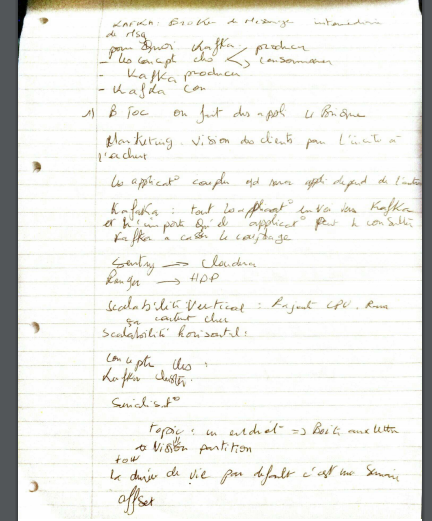 KAFKA : Broker de Message intermédiaire
de Msg
pour Kafka producer
- Les concept clés consommateur
- Kafka producer
- Kafka Con
1) B Toc on fait des appli
Marketing : Vision des clients pour L'inciter à
l'achat
Les applicat° couplé est une appli depend de l'autre
Kafaka : tout application envoi vers Kafka
et n'importe quel applicat° peut le consulter
Kafka a casser le couplage
Sentry → Cloudera
Ranger → HDP
Scalabilité Vertical : Rajout CPU, Ram
ça coutent cher
Scalabilité horisontal :
Concepte clés :
Kafka cluster.
Serialisat°
Topic : un endroit => Boite aux lettre
partition
La durée de vie par défault c'est une Semaine
offset